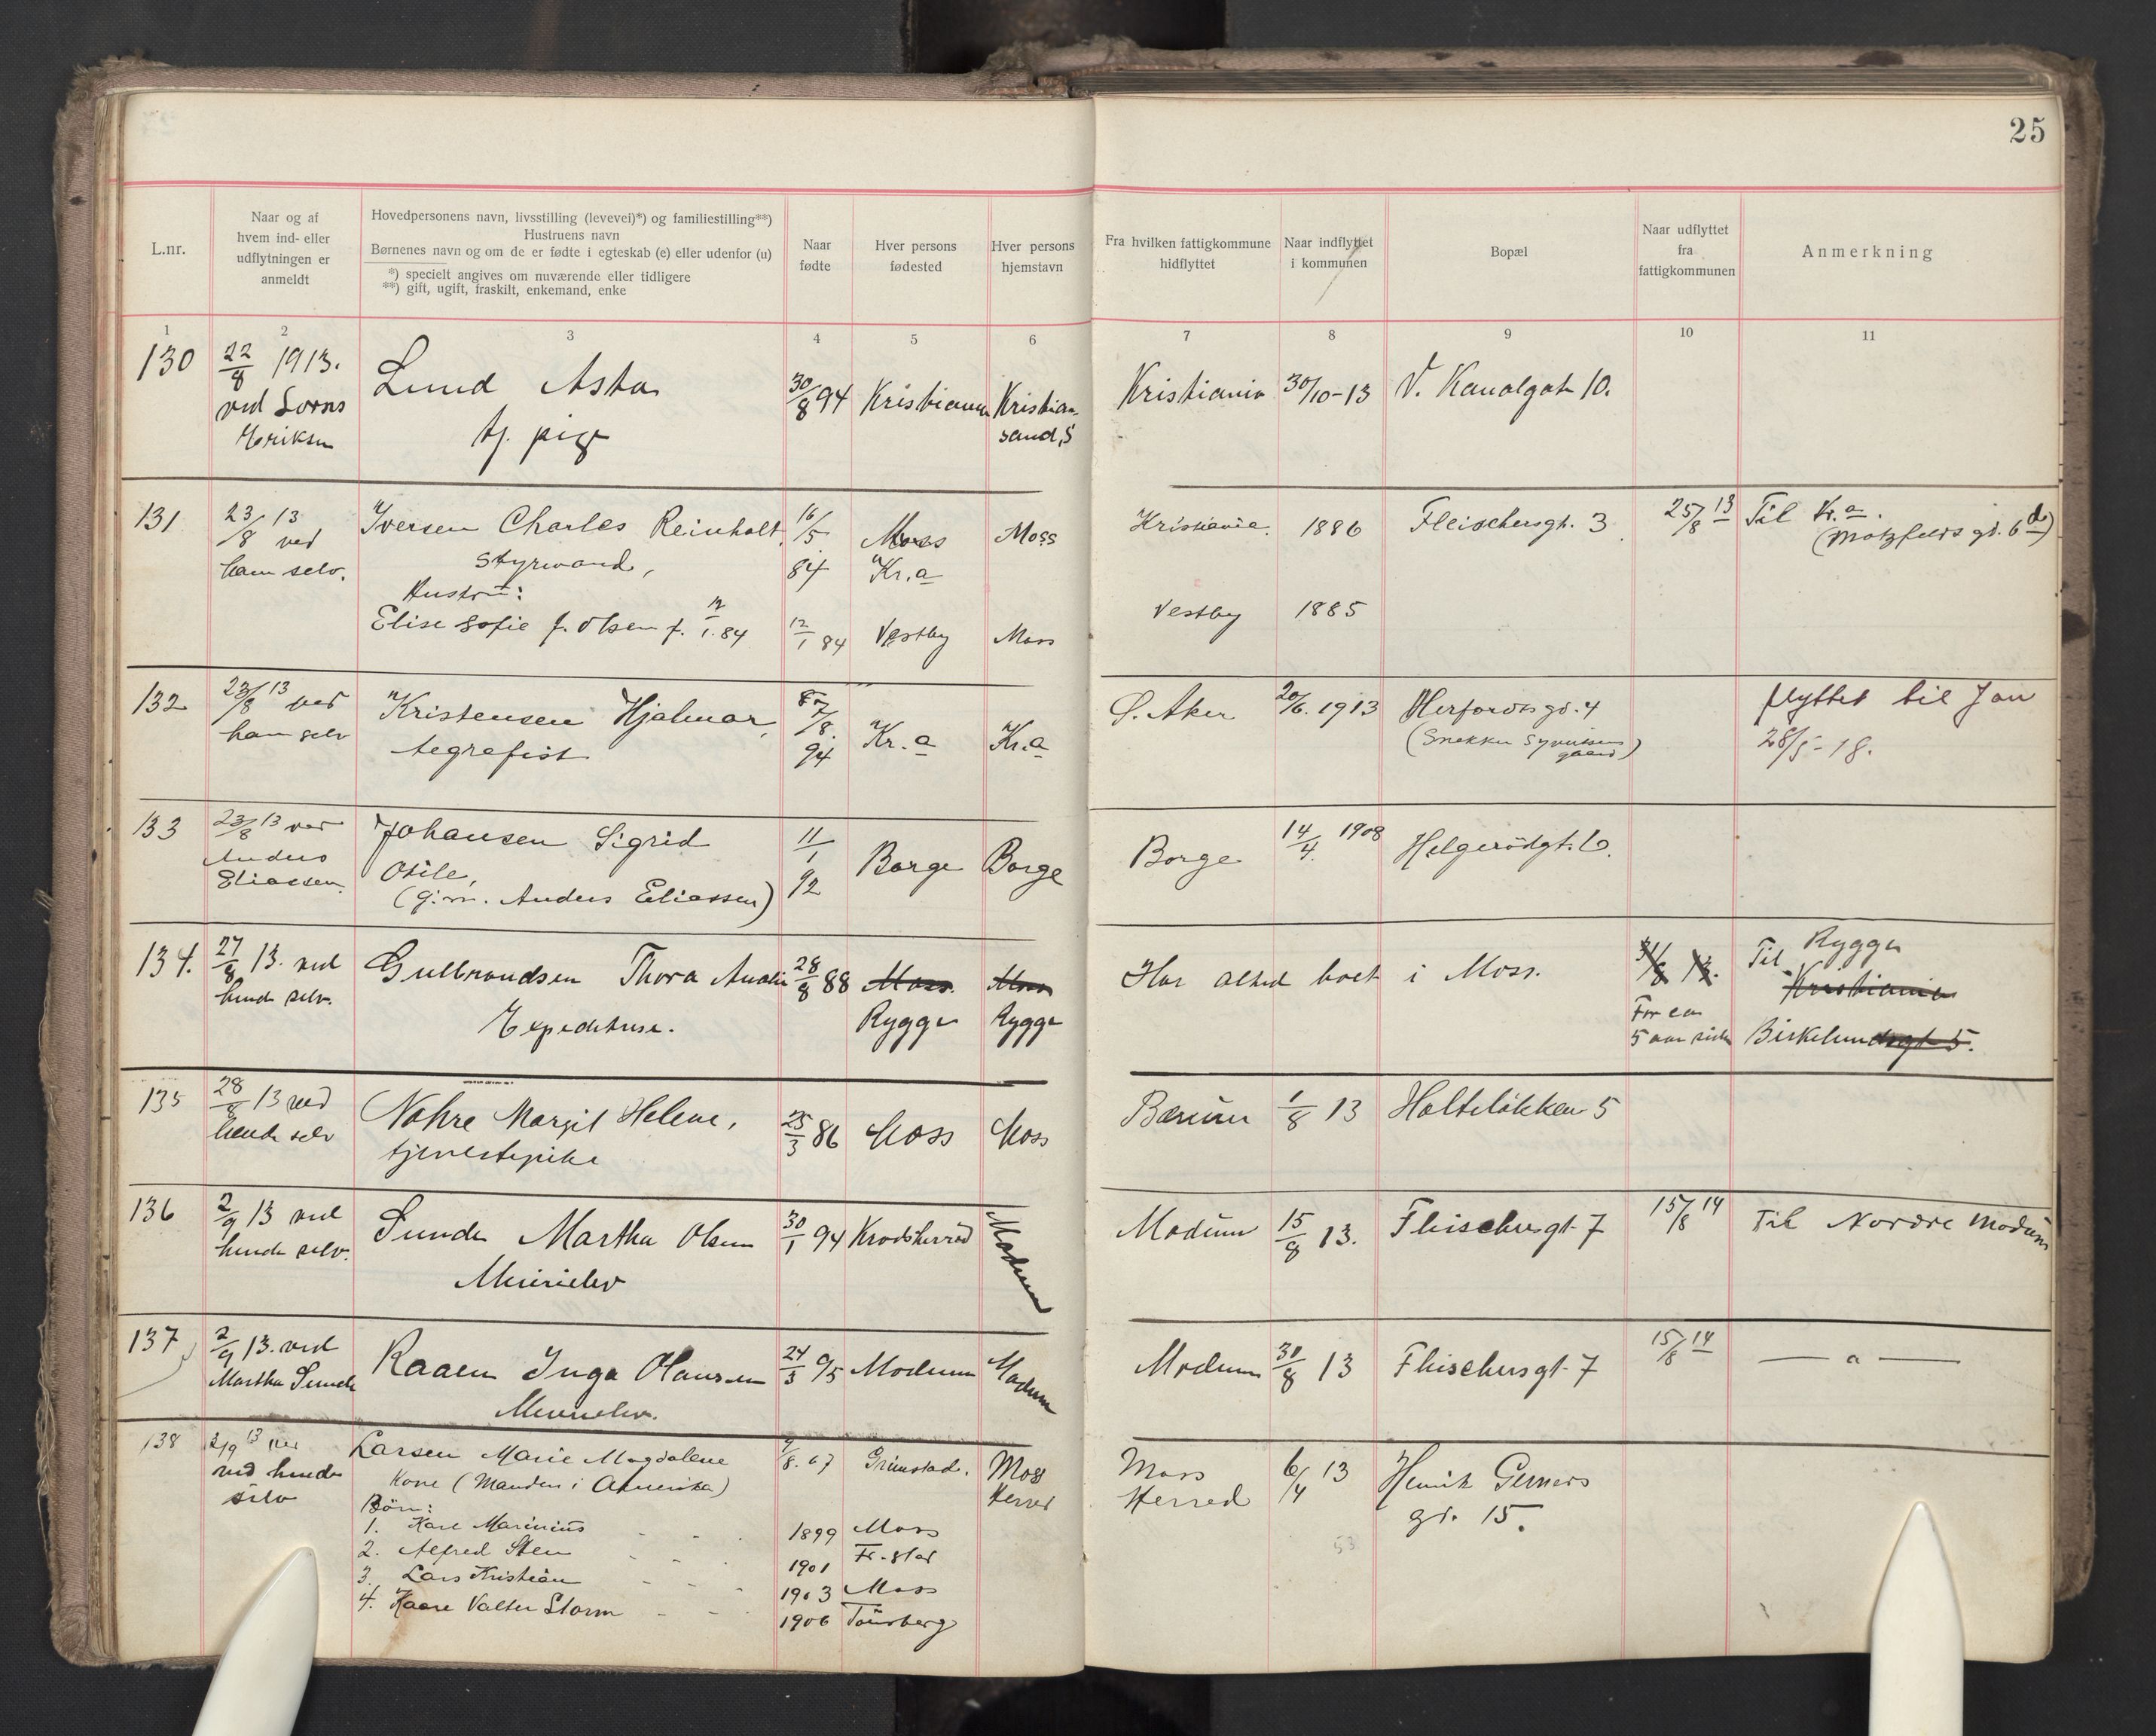 25
L.nr.
Naar og af
hvem ind- eller
udflytningen er
anmeldt
Hovedpersonens navn, livsstilling (levevei)*) og familiestilling**)
Hustruens navn
Børnenes navn og om de er fødte i egteskab (e) eller udenfor (u)
*) specielt angives om nuværende eller tidligere
**) gift, ugift, fraskilt, enkemand, enke
Naar
fødte
Hver persons
fødested
Hver persons
hjemstavn
Fra hvilken fattigkommune
hidflyttet
Naar indflyttet
i kommunen
Bopæl
Naar udflyttet
fra
fattigkommunen
Anmerkning
1 2 3 4 5 6 7 8 9 10 11
130 22/8 1913. Lund Asta 30/8 94 Kristiania Kristian- Kristiania 30/10-13 V. Kanalgat 10.
ved
tj. pige sand, S
131 23/8 13 Iversen Charles Reinholt, 16/5 Moss Moss Kristiania. 1886 Fleischersgt. 3 25/8 13 Til Kr.a.
ved (Motzfelds gt. 6 d)
ham selv. Styrmand, 84 Kr.a
Hustru:
Elise Sofie f. Olsen f. 12/1.84 12/1 84 Vestby Moss Vestby 1885
132 23/8 13 ved Kristensen Hjalmar, 8 7/8. Kr.a Kr.a Ø. Aker 20/6. 1913 Herfords gt. 4 flyttet til Jan
ham selv tegrafist 94 (Snekker gaard) 28/5-18.
133 23/8 13 ved Johansen Sigrid 11/1 Borge Borge Borge 14/4. 1908 Helgerødgt. 10.
Anders Otile, 92
Eliassen. (g.m. Anders Eliassen)
134. 27/8 13. ved Gulbrandsen Thora Amalie 28/8 88 Moss. Moss Har altid boet i Moss. 31/8 13. Til Rygge
hende selv. Kristiania
Expeditrise. Rygge Rygge For ca
5 aar siden Birkelundsgt 5.
135 28/8 13 ved Nohre Margit Helene, 25/3 86 Moss Moss Bærum 1/8 13 Holteløkken 5
hende selv tjenestepike
136 2/9 13 ved Sunde Martha Olsen 30/1 94 Krødsherred Modum Modum 15/8 13. Fleischersgt. 7 15/8 14 Til Nordre Modum
hende selv. Meierielev
137 2/9 13. ved Raaen Inga Olausen 24/3 95 Modum Modum Modum 30/8 13 Fleischersgt. 7 15/8 14 — a —
Martha Sunde Meierielev.
138 2/9 13 ved Larsen Marie Magdalene 9/8. 67 Grimstad. Moss Moss 6/4 13 Henrik Gerners
ved hende Kone (Manden i Amerika) Herred Herred gt. 15.
selv Børn:
1. Karl Marinius - - . 1899 Moss
2. Alfred Sten - - . 1901 Fr.stad
3. Lars Kristian - - - 1903 Moss
4. Kaare Valter Storm - - . 1906 Tønsberg
53